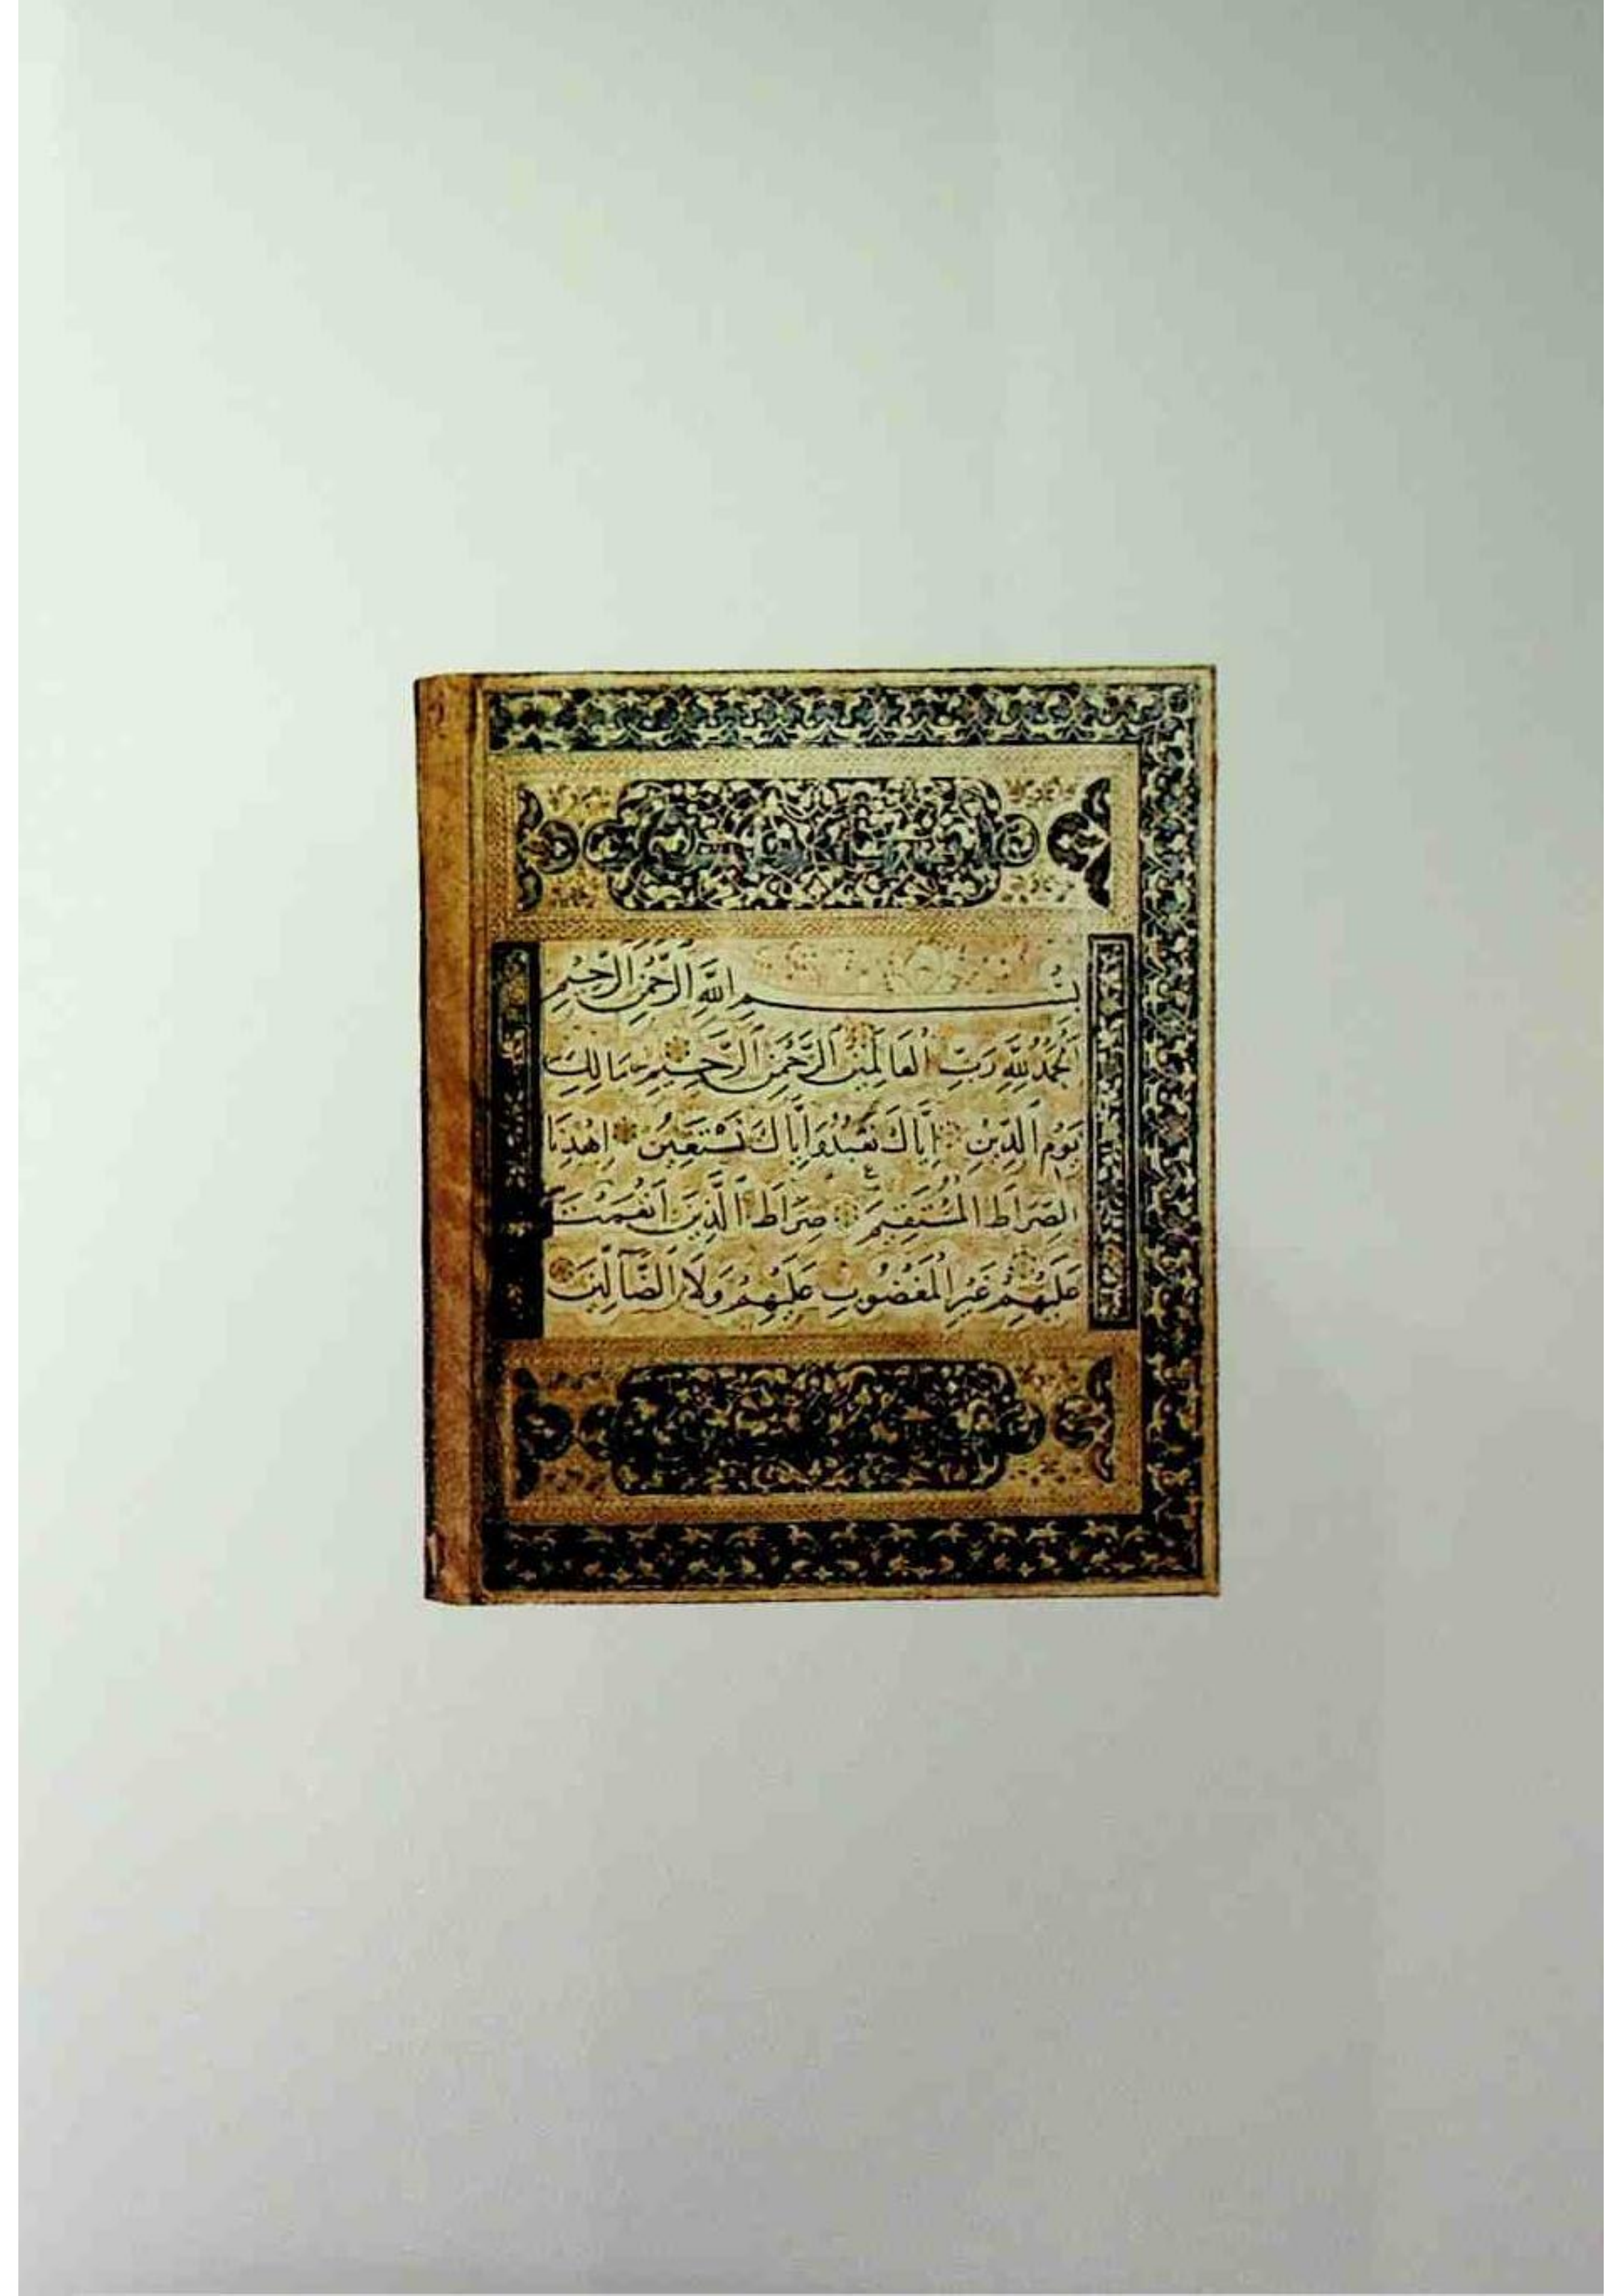 بِسْمِ اللَّهِ الرَّحْمَنِ الرَّحِيمِ
الْحَمْدُ لِلَّهِ رَبِّ الْعَالَمِينَ الرَّحْمَنِ الرَّحِيمِ مَالِكِ
يَوْمِ الدِّينِ إِيَّاكَ نَعْبُدُ وَإِيَّاكَ نَسْتَعِينُ اِهْدِنَا
الصِّرَاطَ الْمُسْتَقِيمَ صِرَاطَ الَّذِينَ أَنْعَمْتَ
عَلَيْهِمْ غَيْرِ الْمَغْضُوبِ عَلَيْهِمْ وَلَا الضَّآلِّينَ